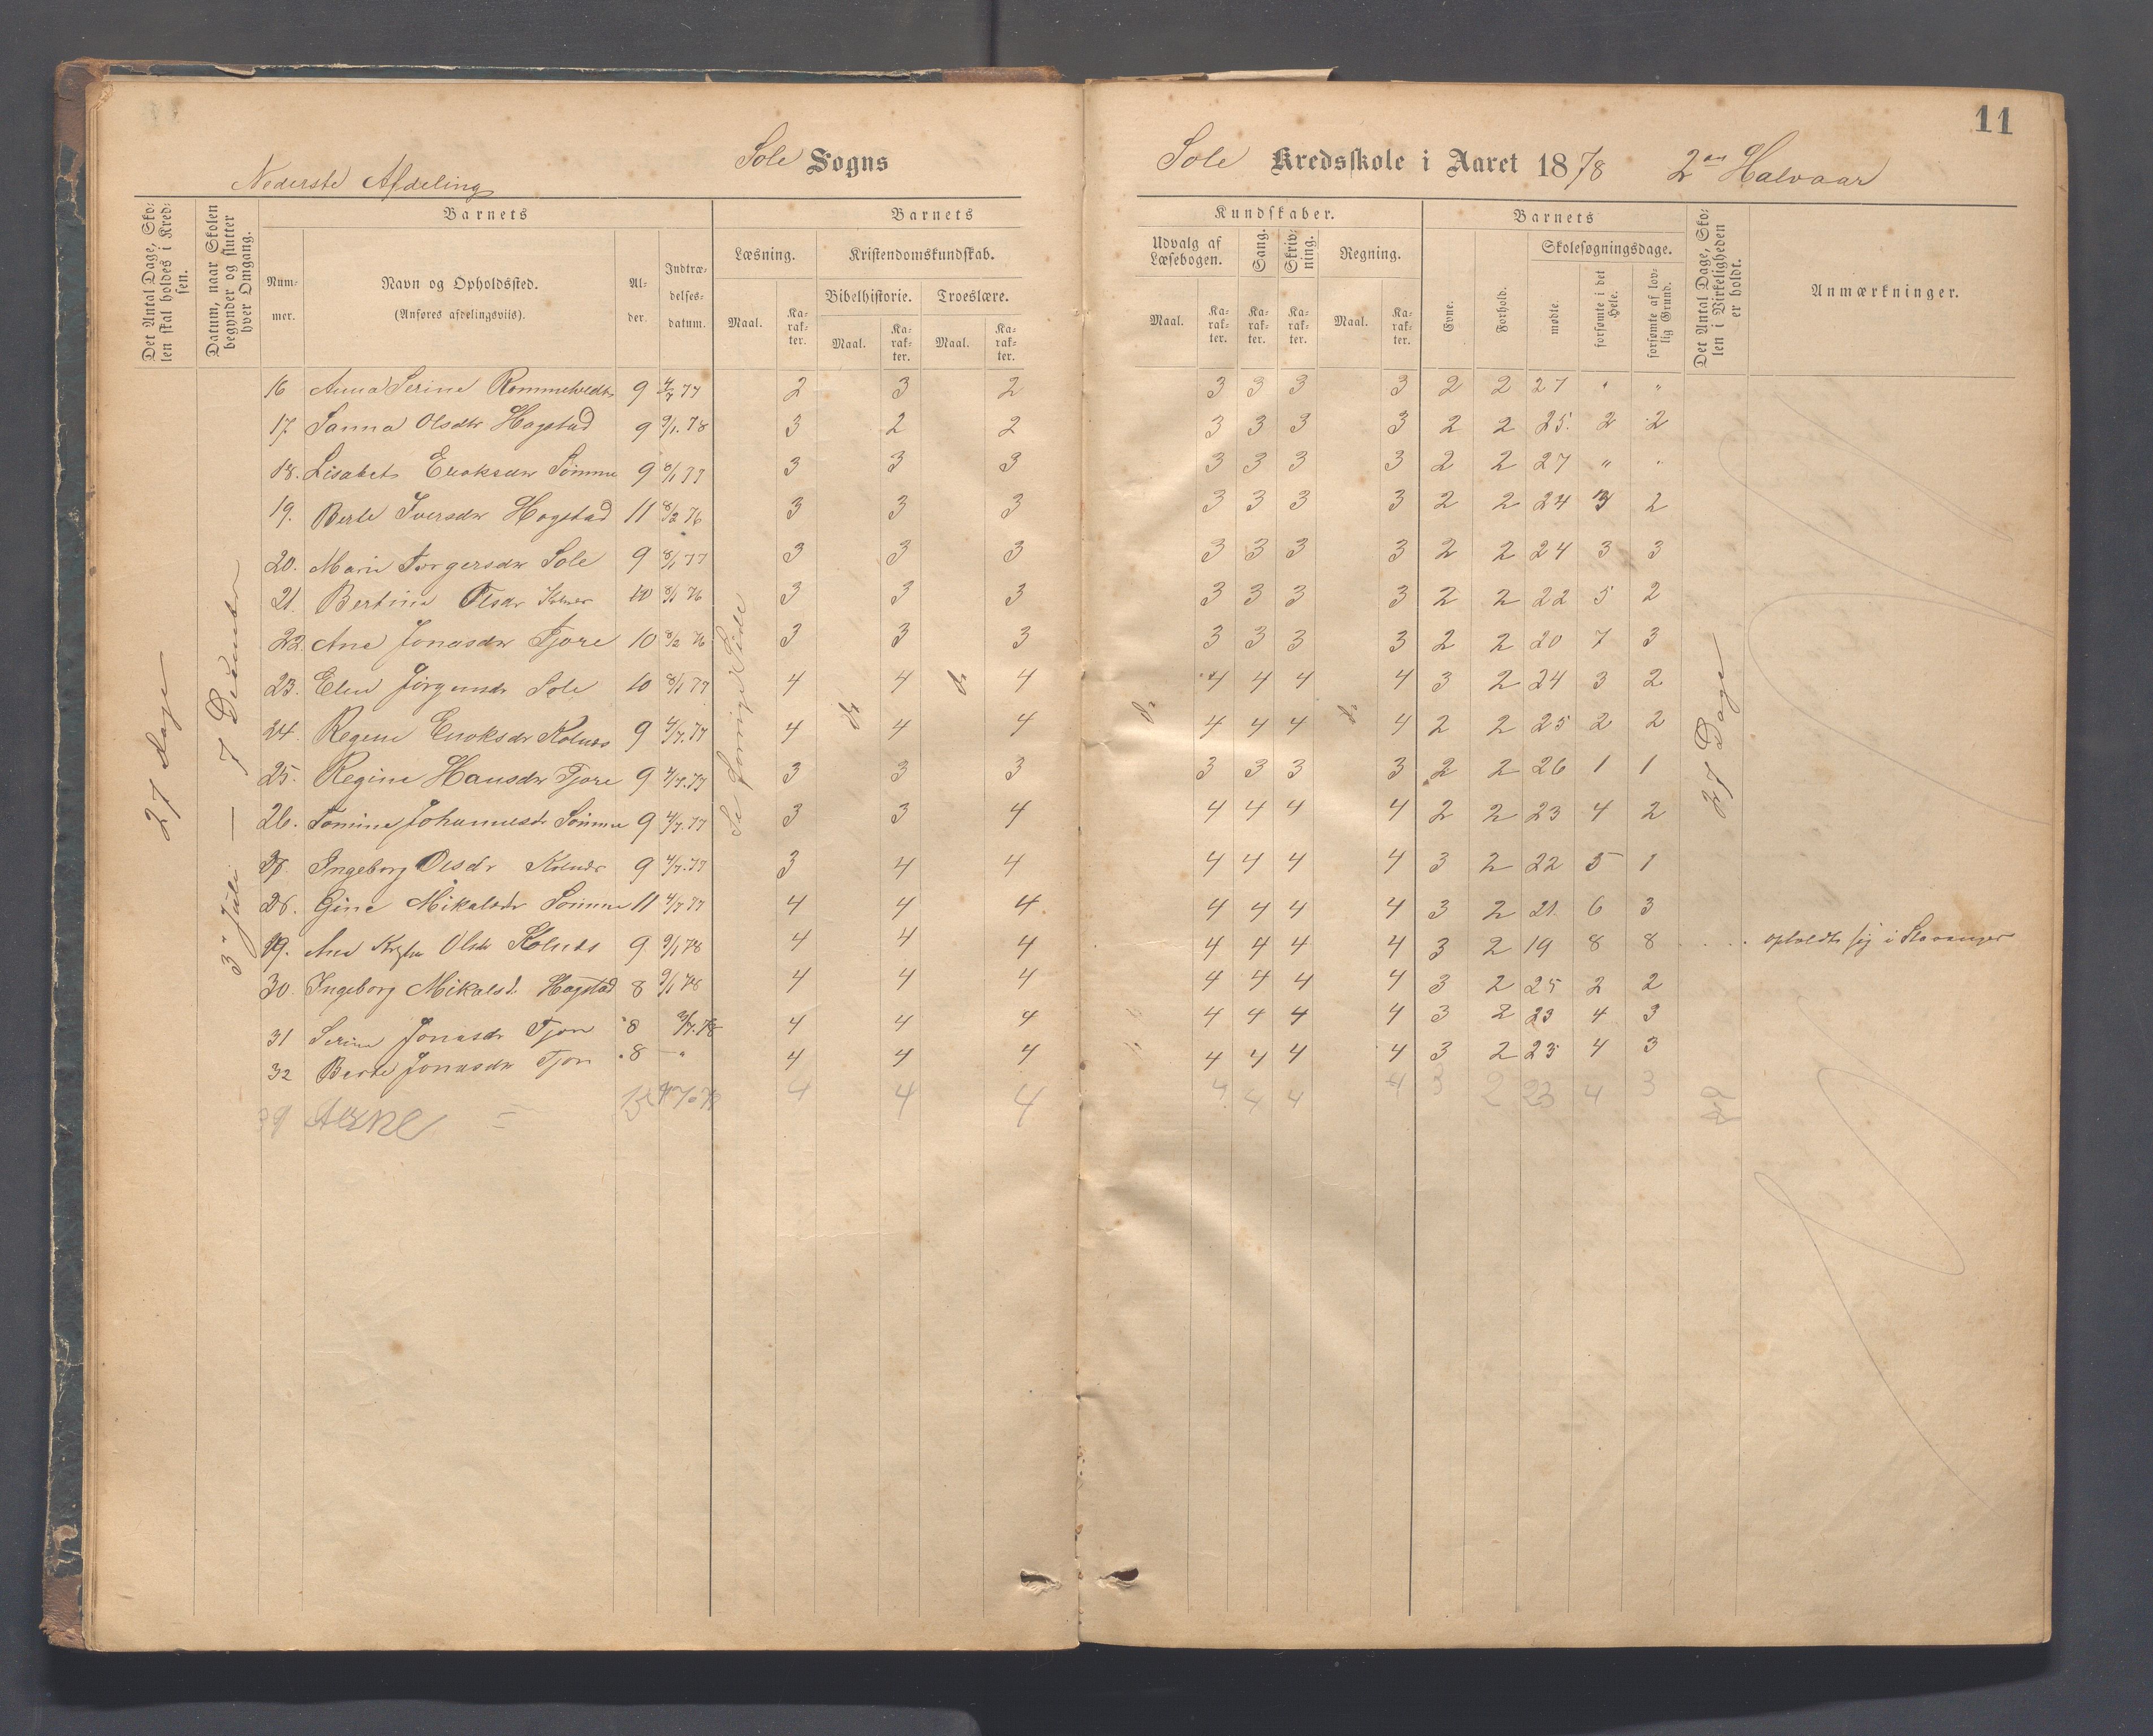 11
Sole Sogns
Sole Kredsskole i Aaret 1878 2det Halvaar
Nederste Afdeling
Det Antal Dage, Skolen skal holdes i Kredsen.
Datum, naar Skolen begynder og slutter hver Omgang.
Barnets
Nummer.
Navn og Opholdssted.
(Anføres afdelingsviis).
Alder.
Indtrædelsesdatum.
Barnets
Kundskaber.
Læsning.
Kristendomskundskab.
Bibelhistorie.
Troeslære.
Maal.
Karakter.
Maal.
Karakter.
Maal.
Karakter.
Udvalg af Læsebogen.
Sang.
Skrivning.
Regning.
Maal.
Karakter.
Karakter.
Karakter.
Maal.
Karakter.
Barnets
Evne.
Forhold.
Skolesøgningsdage.
mødte.
forsømte i det Hele.
forsømte af lovlig Grund.
Det Antal Dage, Skolen i Virkeligheden er holdt.
Anmærkninger.
27 Dage
3 Juli — 7 December
Se forrige Side
do do do do
27 Dage
16 Anna Serine 9 4/7 77 2 3 2 3 3 3 3 2 2 27 " "
17. Sanna Olsdtr Hogstad 9 9/1. 78 3 2 2 3 3 3 3 2 2 25. 2 2
18. Lisabet Eriksdtr Sømme 9 8/1 77 3 3 3 3 3 3 3 2 2 27 " "
19. Berte Iversdtr Hogstad 11 8/2 76 3 3 3 3 3 3 3 2 2 24 3 2
20. Marie Torgersdtr Sole 9 8/1 77 3 3 3 3 3 3 3 2 2 24 3 3
21. Bertine Olsdr Kolnes 10 8/1 76 3 3 3 3 3 3 3 2 2 22 5 2
22. Ane Jonasdtr Tjore 10 8/2 76 3 3 3 3 3 3 3 2 2 20 7 3
23. Elen Jørgensdr Sole 10 8/1 77 4 4 4 4 4 4 4 3 2 24 3 2
24. Regine Enoksdr Kolnes 9 4/7. 77 4 4 4 4 4 4 4 2 2 25 2 2
25. Regine Hansdtr Tjore 9 4/7. 77 3 3 3 3 3 3 3 2 2 26 1 1
26. Tomine Johannesdr Sømme 9 4/7. 77 3 3 4 4 4 4 4 2 2 23 4 2
27. Ingeborg Olsdr Kolnes 9 4/7. 77 3 4 4 4 4 4 4 3 2 22 5 1
28. Gine Mikalsdtr Sømme 11 4/7 77 4 4 4 4 4 4 4 3 2 21. 6 3
29. Ane Olsdr Kolnes 9 9/1 78 4 4 4 4 4 4 4 3 2 19 8 8 . . . . opholdt sig i Stavanger
30. Ingeborg Mikalsd. Hogstad 8 9/1 78 4 4 4 4 4 4 4 3 2 25 2 2
31 Serine Jonasdr Tjore 8 3/7. 78 4 4 4 4 4 4 4 3 2 23 4 3
32 Berte Jonasdtr Tjore 8 — " 4 4 4 4 4 4 4 3 2 23 4 3
4 4 4 4 4 4 4 3 2 23 4 3